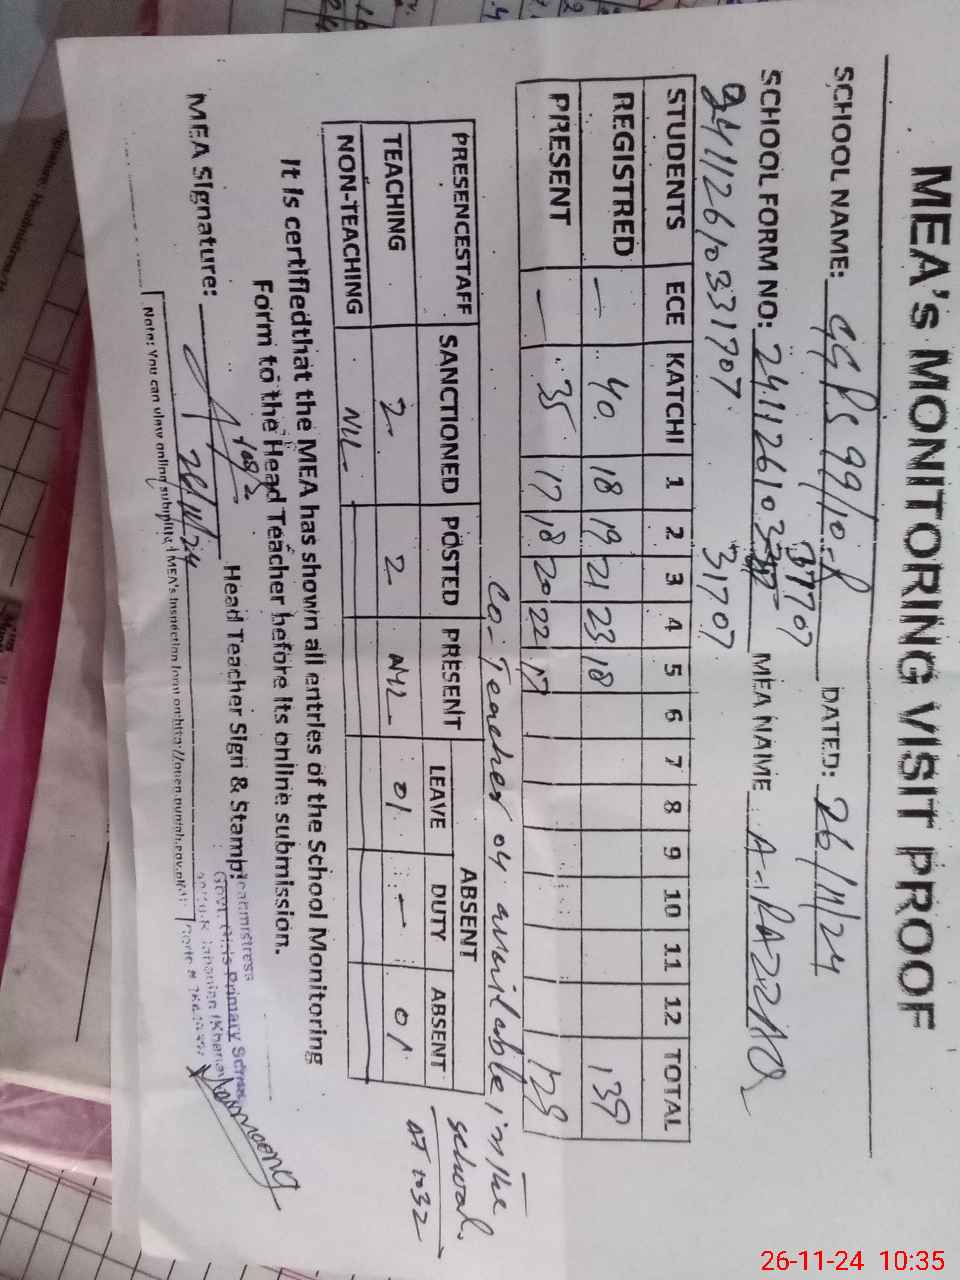 MEA's MONITORING VISIT PROOF
SCHOOL NAME: GGPS 99/10-R DATED: 26/11/24
37707
SCHOOL FORM NO: 241126103 MEA NAME A-RAZZAQ
24112610331707 31707
STUDENTS ECE KATCHI 1 2 3 4 5 6 7 8 9 10 11 12 TOTAL
REGISTRED — 40 18 19 21 23 18 139
PRESENT — 35 17 18 20 22 17 129
Co-Teacher 04 available in the school.
AT 1032
PRESENCESTAFF SANCTIONED POSTED PRESENT ABSENT
LEAVE DUTY ABSENT
TEACHING 2 2 NIL 01 — 01
NON-TEACHING NIL
It is certifiedthat the MEA has shown all entries of the School Monitoring
Form to the Head Teacher before its online submission.
MEA Signature: Head Teacher Sign & Stamp:
26/11/24
Govt. Girls Primary School
Note: You can view online submitted MEA's Inspection
26-11-24 10:35